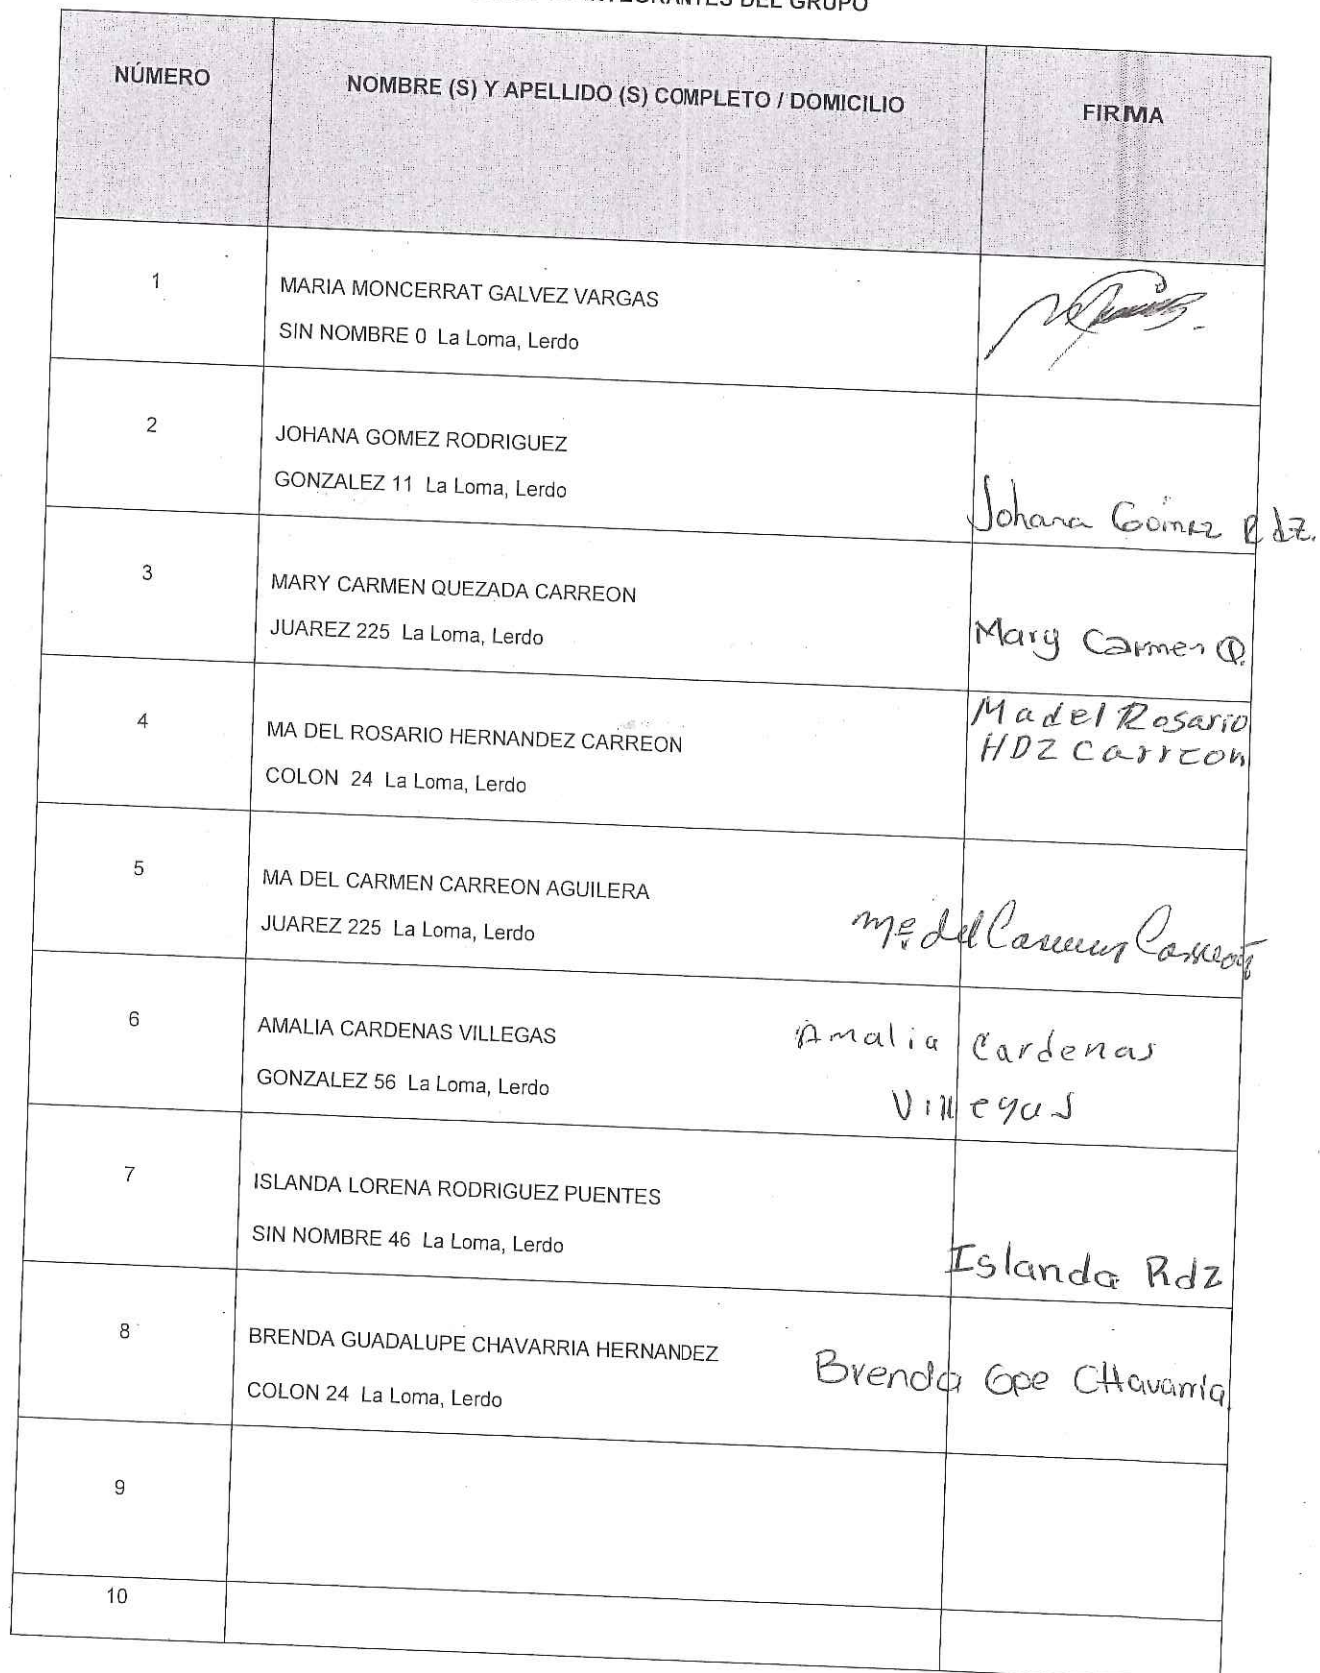 INTEGRANTES DEL GRUPO
NÚMERO
NOMBRE (S) Y APELLIDO (S) COMPLETO / DOMICILIO
FIRMA
1
MARIA MONCERRAT GALVEZ VARGAS
SIN NOMBRE 0 La Loma, Lerdo
2
JOHANA GOMEZ RODRIGUEZ
GONZALEZ 11 La Loma, Lerdo
Johana Gómez Rdz.
3
MARY CARMEN QUEZADA CARREON
JUAREZ 225 La Loma, Lerdo
Mary Carmen Q.
4
MA DEL ROSARIO HERNANDEZ CARREON
COLON 24 La Loma, Lerdo
Ma del Rosario
HDZ Carreon
5
MA DEL CARMEN CARREON AGUILERA
JUAREZ 225 La Loma, Lerdo
Ma del Carmen Carreón
6
AMALIA CARDENAS VILLEGAS
GONZALEZ 56 La Loma, Lerdo
Amalia Cardenas
Villegas
7
ISLANDA LORENA RODRIGUEZ PUENTES
SIN NOMBRE 46 La Loma, Lerdo
Islanda Rdz
8
BRENDA GUADALUPE CHAVARRIA HERNANDEZ
COLON 24 La Loma, Lerdo
Brenda Gpe CHavarria
9
10